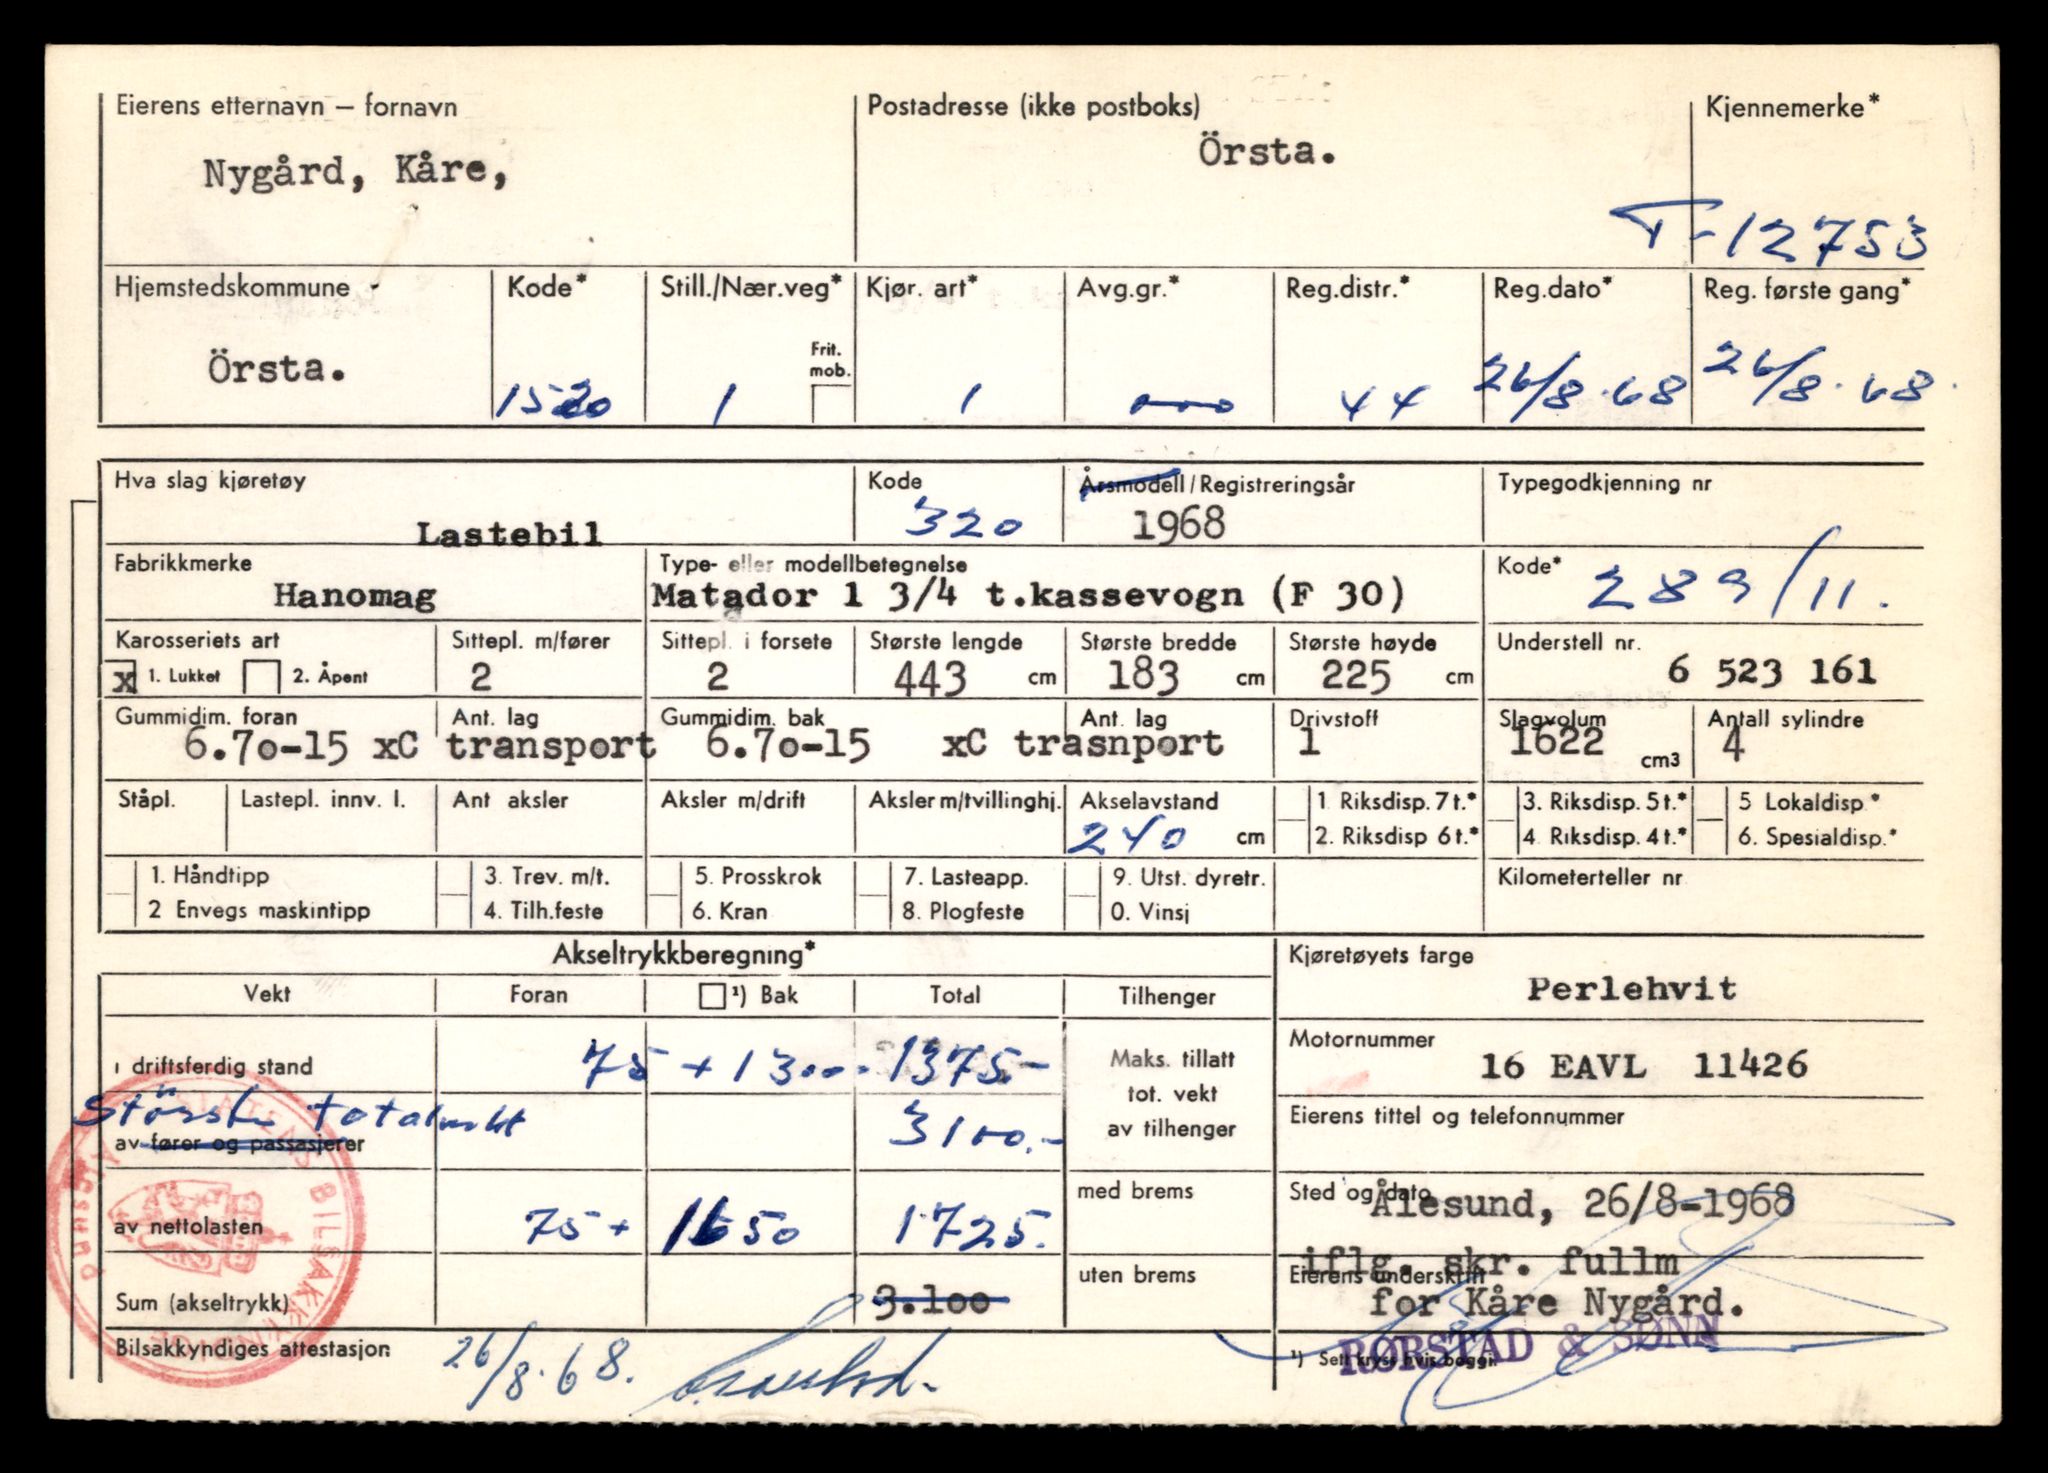 Eierens etternavn — fornavn
Postadresse (ikke postboks)
Kjennemerke*
Nygård, Kåre,
Örsta.
T-12753
Hjemstedskommune
Kode*
Still./Nær.veg*
Kjør. art*
Avg.gr.*
Reg.distr.*
Reg.dato*
Reg. første gang*
Örsta.
1520
1
Frit. mob.
1
000
44
26/8.68
26/8.68.
Hva slag kjøretøy
Kode
Årsmodell/Registreringsår
Typegodkjenning nr
Lastebil
320
1968
Fabrikkmerke
Type- eller modellbetegnelse
Kode*
Hanomag
Matador 1 3/4 t.kassevogn (F 30)
289/11.
Karosseriets art
Sittepl. m/fører
Sittepl. i forsete
Største lengde
Største bredde
Største høyde
Understell nr.
x 1. Lukket 2. Åpent
2
2
443 cm
183 cm
225 cm
6 523 161
Gummidim. foran
Ant. lag
Gummidim. bak
Ant. lag
Drivstoff
Slagvolum
Antall sylindre
6.70-15 xC transport
6.70-15 xC trasnport
1
1622 cm3
4
Ståpl.
Lastepl. innv. l.
Ant aksler
Aksler m/drift
Aksler m/tvillinghj.
Akselavstand
1 Riksdisp. 7 t.*
3. Riksdisp. 5 t.*
5 Lokaldisp.*
240 cm
2. Riksdisp 6 t.*
4. Riksdisp. 4 t.*
6. Spesialdisp.*
1. Håndtipp
3. Trev. m/t.
5. Prosskrok
7. Lasteapp.
9. Utst. dyretr.
Kilometerteller nr
2 Envegs maskintipp
4. Tilh.feste
6. Kran
8. Plogfeste
0. Vinsj
Akseltrykkberegning*
Kjøretøyets farge
Vekt
Foran
¹) Bak
Total
Tilhenger
Perlehvit
i driftsferdig stand
75 + 1300.- 1375.-
Maks. tillatt
tot. vekt
av tilhenger
Motornummer
16 EAVL 11426
Største totalvekt
av fører og passasjerer
3100.-
Eierens tittel og telefonnummer
av nettolasten
75 + 1650 1725.
med brems
Sted og dato
Ålesund, 26/8-1968
iflg. skr. fullm
Sum (akseltrykk)
3.100
uten brems
Eierens underskrift
for Kåre Nygård.
RØRSTAD & SØNN
Bilsakkyndiges attestasjon
26/8.68.
¹) Sett kryss hvis boggi
STATENS BILSAKKYNDIGE
Ålesund